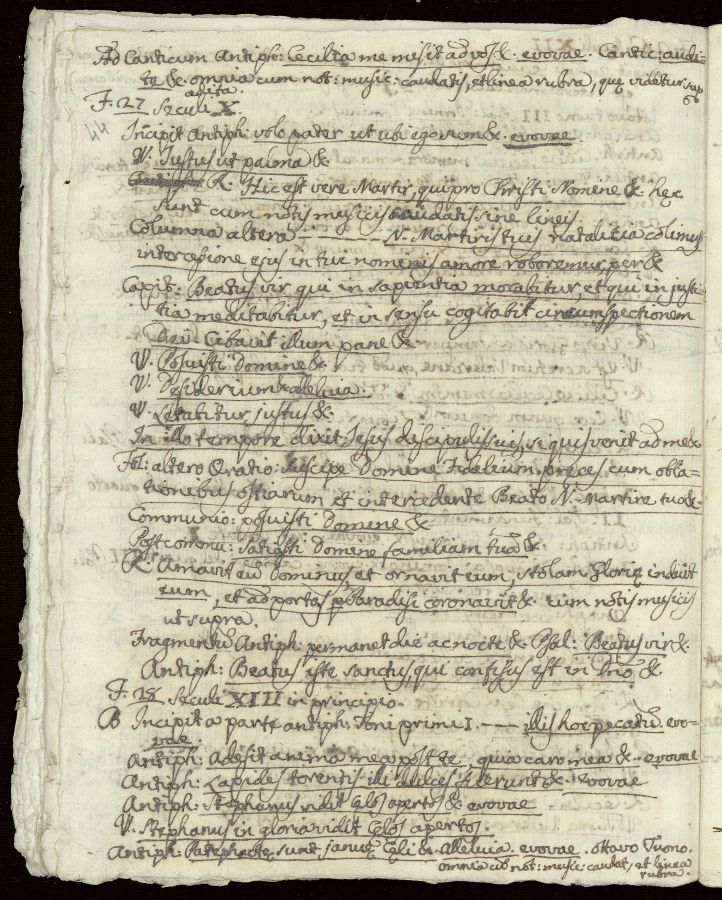 Ad Canticum Antiph: Cecilia me misit ad vos &. evovae. Cantic: audi-
te &. omnia cum not: music: caudatis, et linea rubra, quę videtur sup
addita.
F. 27 Seculi X.
Incipit Antiph: volo pater ut ubi ego sum &. evovae.
V. Justus ut palma &.
R. Hic est vere Martir, qui pro Christi Nomine &. hęc
sunt cum notis musicis caudatis sine lineis.
Columna altera — N. Martiris tui natalitia colimus
intercessione ejus in tui nominis amore roboremur, per &
Capit: Beatus vir qui in sapientia morabitur, et qui in justi-
tia meditabitur, et in sensu cogitabit circumspectionem
Dei: Cibavit illum pane &
V. Posuisti Domine &.
V. Desiderium & alleluia.
V. Lętabitur justus &.
In illo tempore dixit Jesus discipulis suis, si quis venit ad me &
Fol: altero Oratio: Suscipe Domine fidelium preces cum obla-
tionibus ostiarum et intercedente Beato N. Martire tuo &.
Communio: posuisti Domine &
Post commu: satiasti Domine familiam tuã &.
R. Amavit eũ Dominus, et ornavit eum, stolam glorię induit
eum, et ad portas Paradisi coronavit &. cum notis musicis
ut supra.
Fragmentũ Antiph: permanet die ac nocte &. Psal: Beatus vir &.
Antiph: Beatus iste sanctus, qui confisus est in Dño &.
F. 28 Seculi XIII in principio.
B Incipit a parte antiph: Toni primi I. — illis hoc pecatũ. evo-
vae.
Antiph: Adesit anima mea post te, quia caro mea &. evovae
Antiph: Lapides torentis illi dulces fuerunt &. evovae
Antiph: Stephanus vidit Cęlos apertos &. evovae
V. Stephanus in gloria vidit Cęlos apertos.
Antiph: Patefactę sunt januę Cęli &. alleluia. evovae. ottavo Tuono.
omnia cũ not: music: caudat, et linea
rubra.